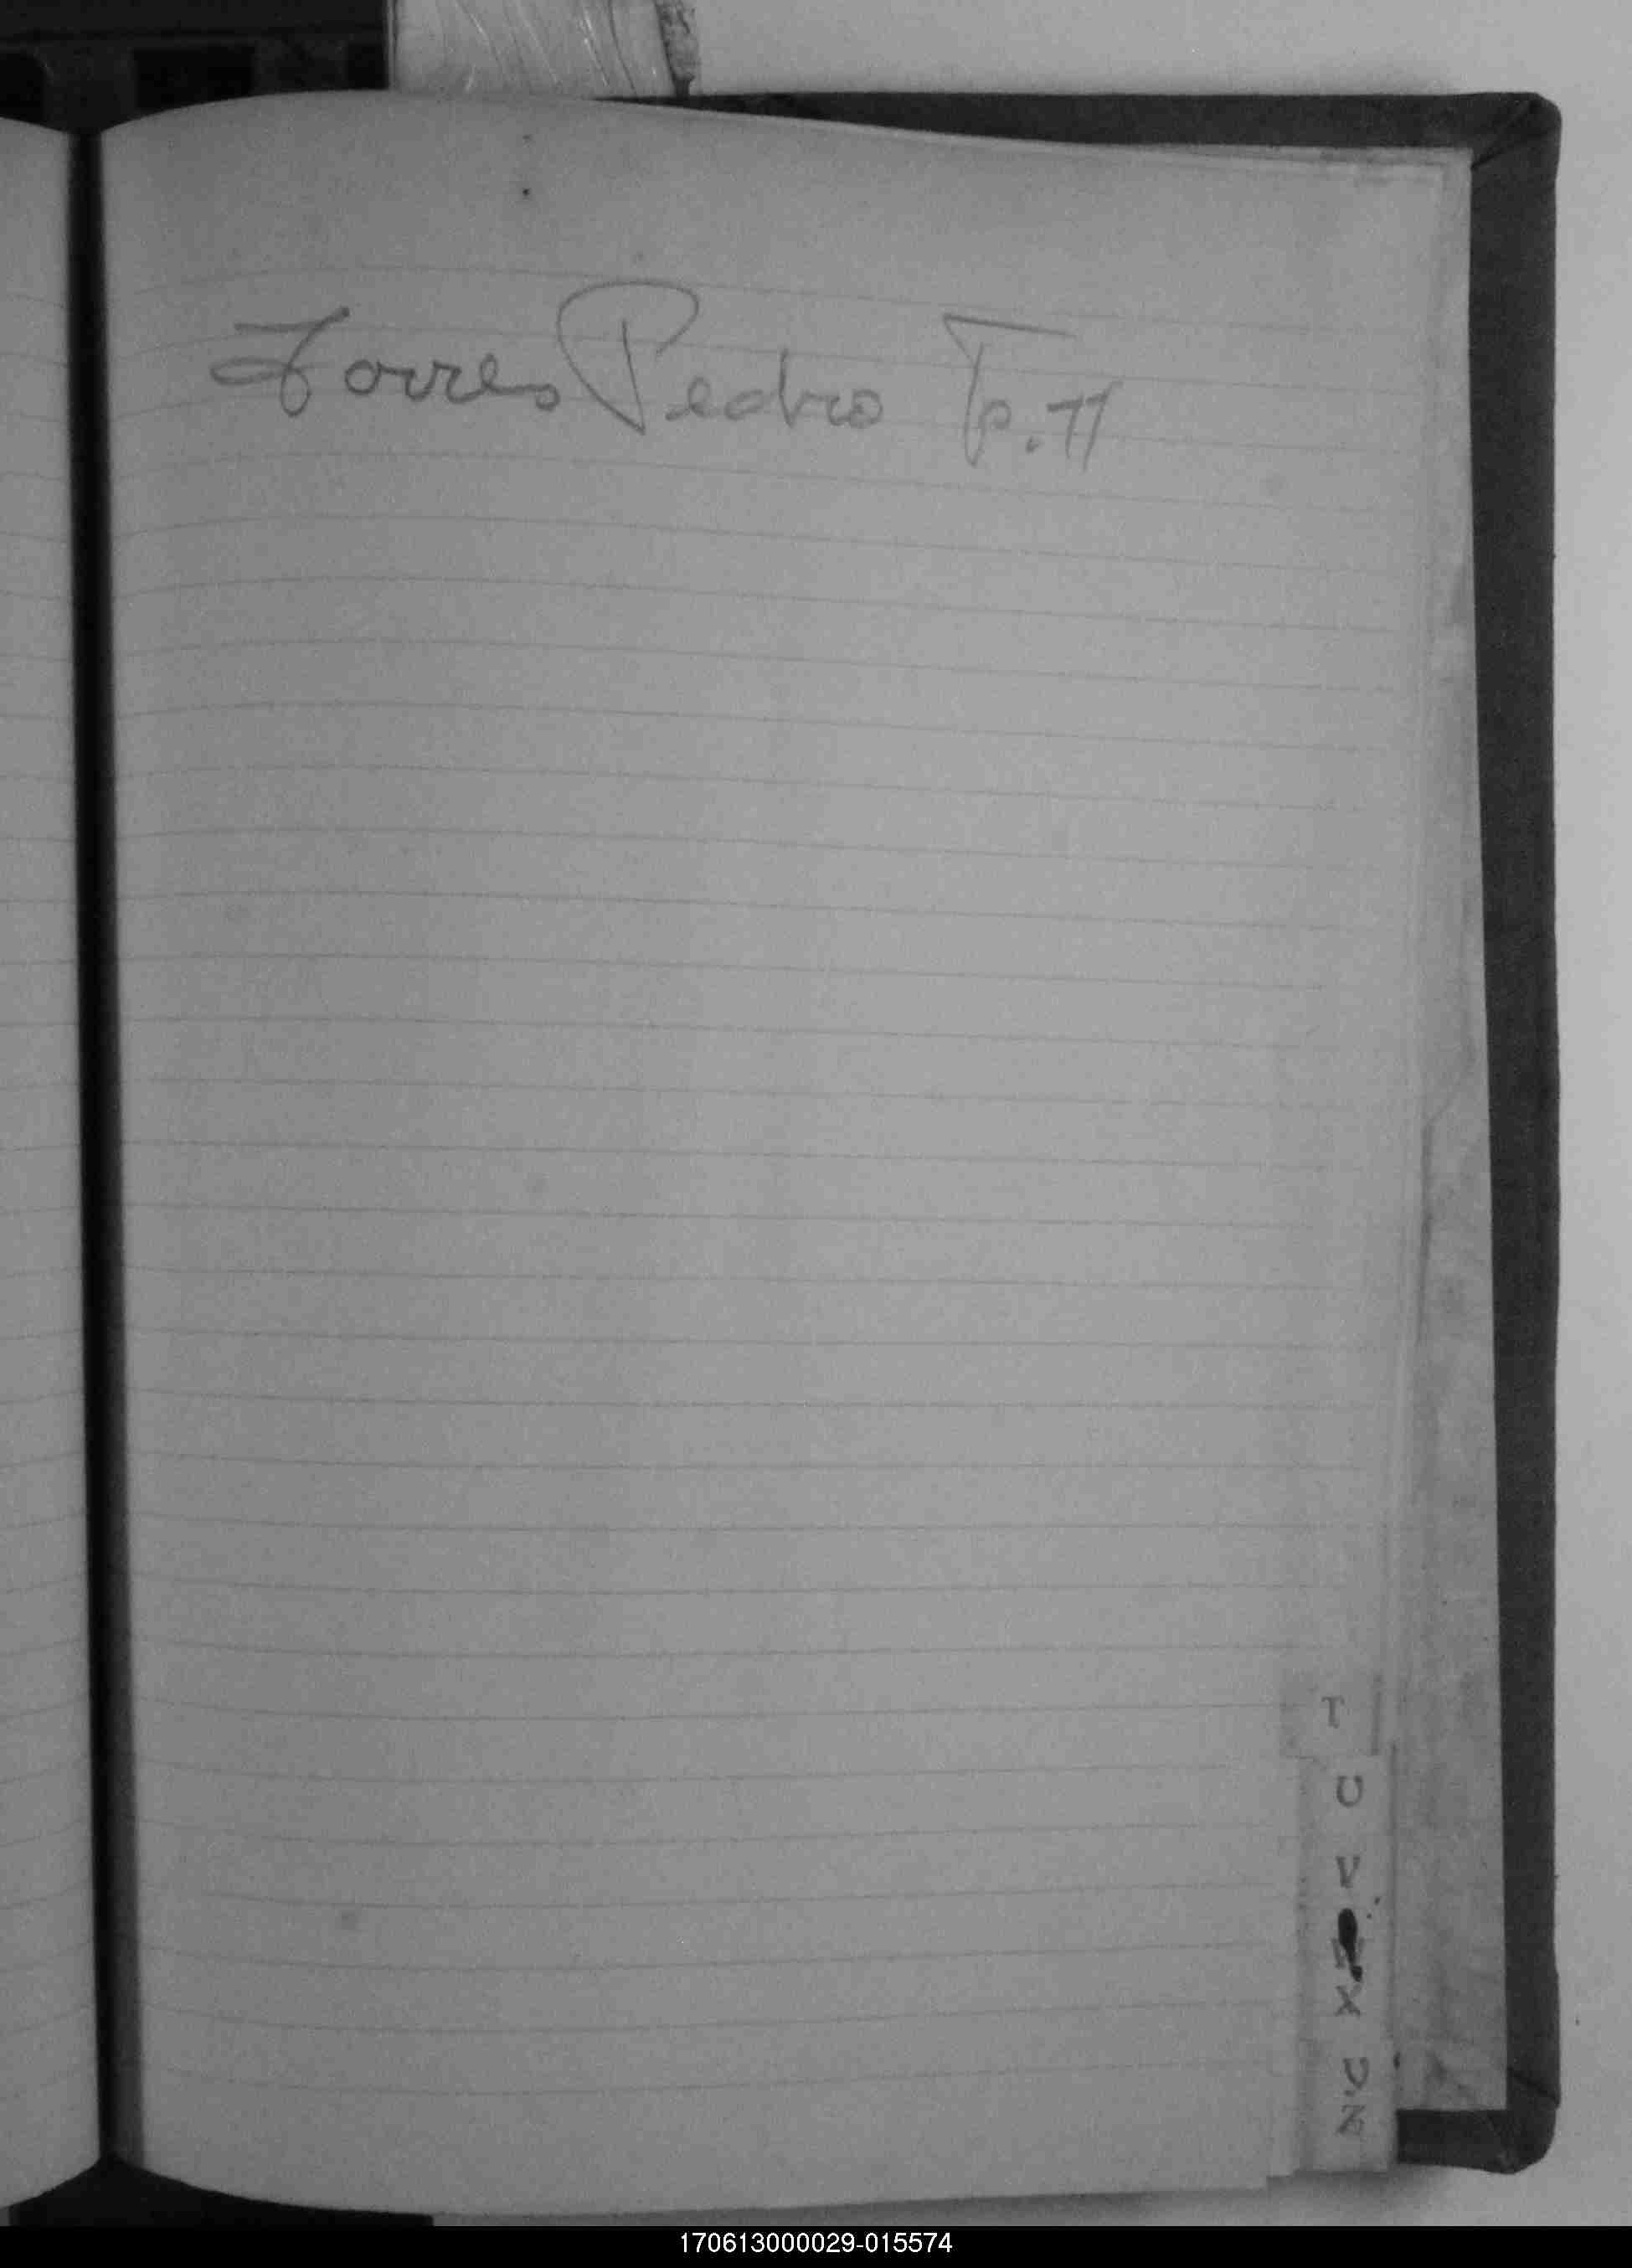 Torres Pedro Tp. 71
T
U
V
X
Z
170613000029-015574